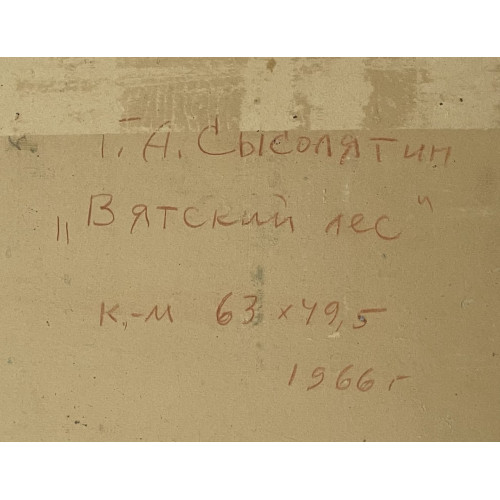 Г. А. Сысолятин
„Вятский лес"
к.-м 63 х 49,5
1966 г